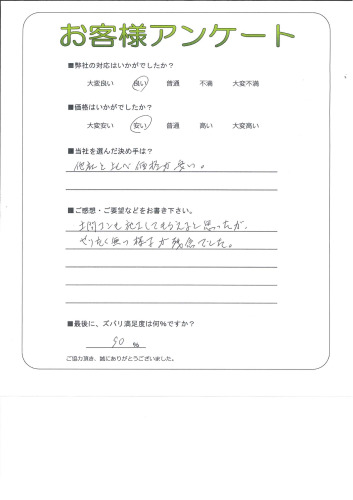 お客様アンケート
■弊社の対応はいかがでしたか？
大変良い 良い 普通 不満 大変不満
■価格はいかがでしたか？
大変安い 安い 普通 高い 大変高い
■当社を選んだ決め手は？
他社と比べ価格が安い。
■ご感想・ご要望などをお書き下さい。
土間コンも してもらえると思ったが、
やはり く無い様子が残念でした。
■最後に、ズバリ満足度は何％ですか？
90 %
ご協力頂き、誠にありがとうございました。